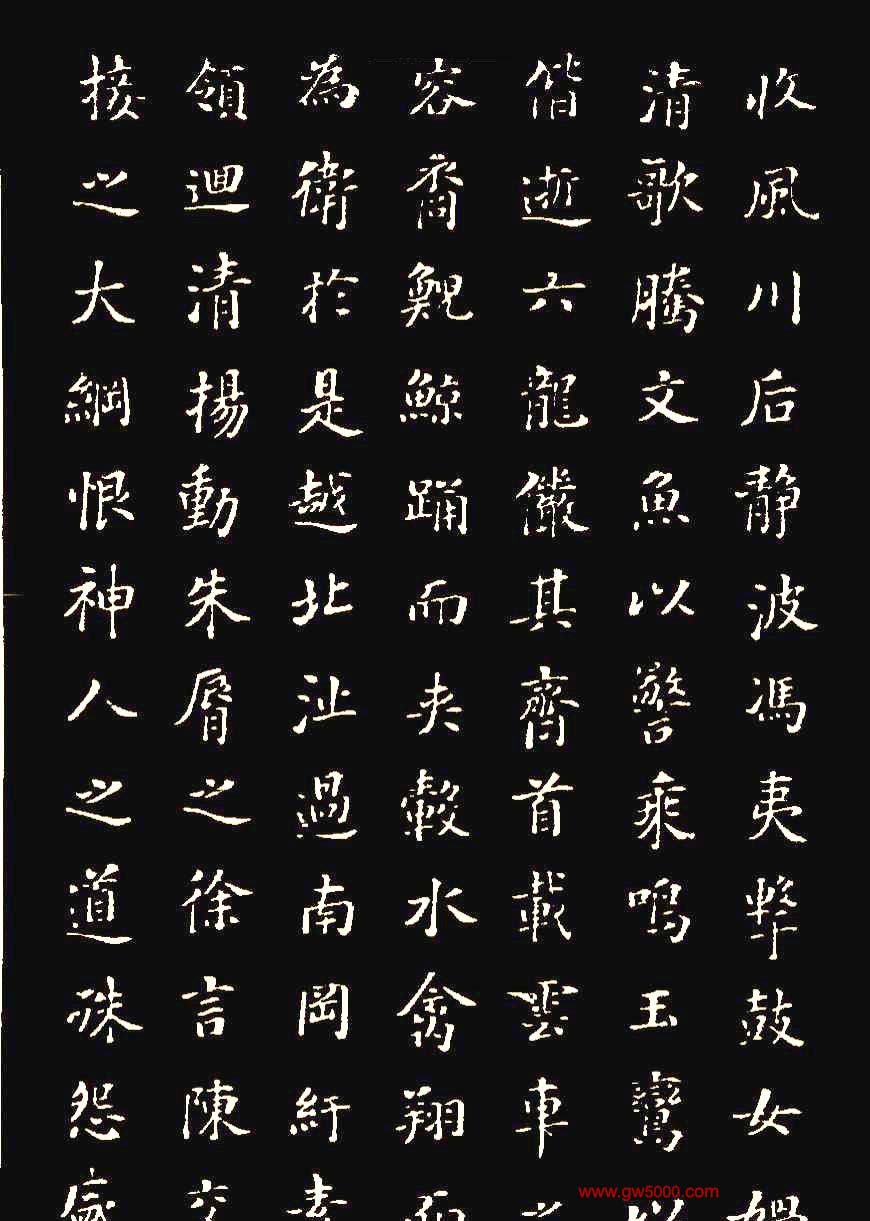 收風川后靜波馮夷擊鼓女媧
清歌騰文魚以警乘鳴玉鸞以
偕逝六龍儼其齊首載雲車之
容裔鯢鯨踊而夾轂水禽翔而
為衛於是越北沚過南岡紆素
領迴清揚動朱脣之徐言陳交
接之大綱恨神人之道殊怨盛
www.gw5000.com